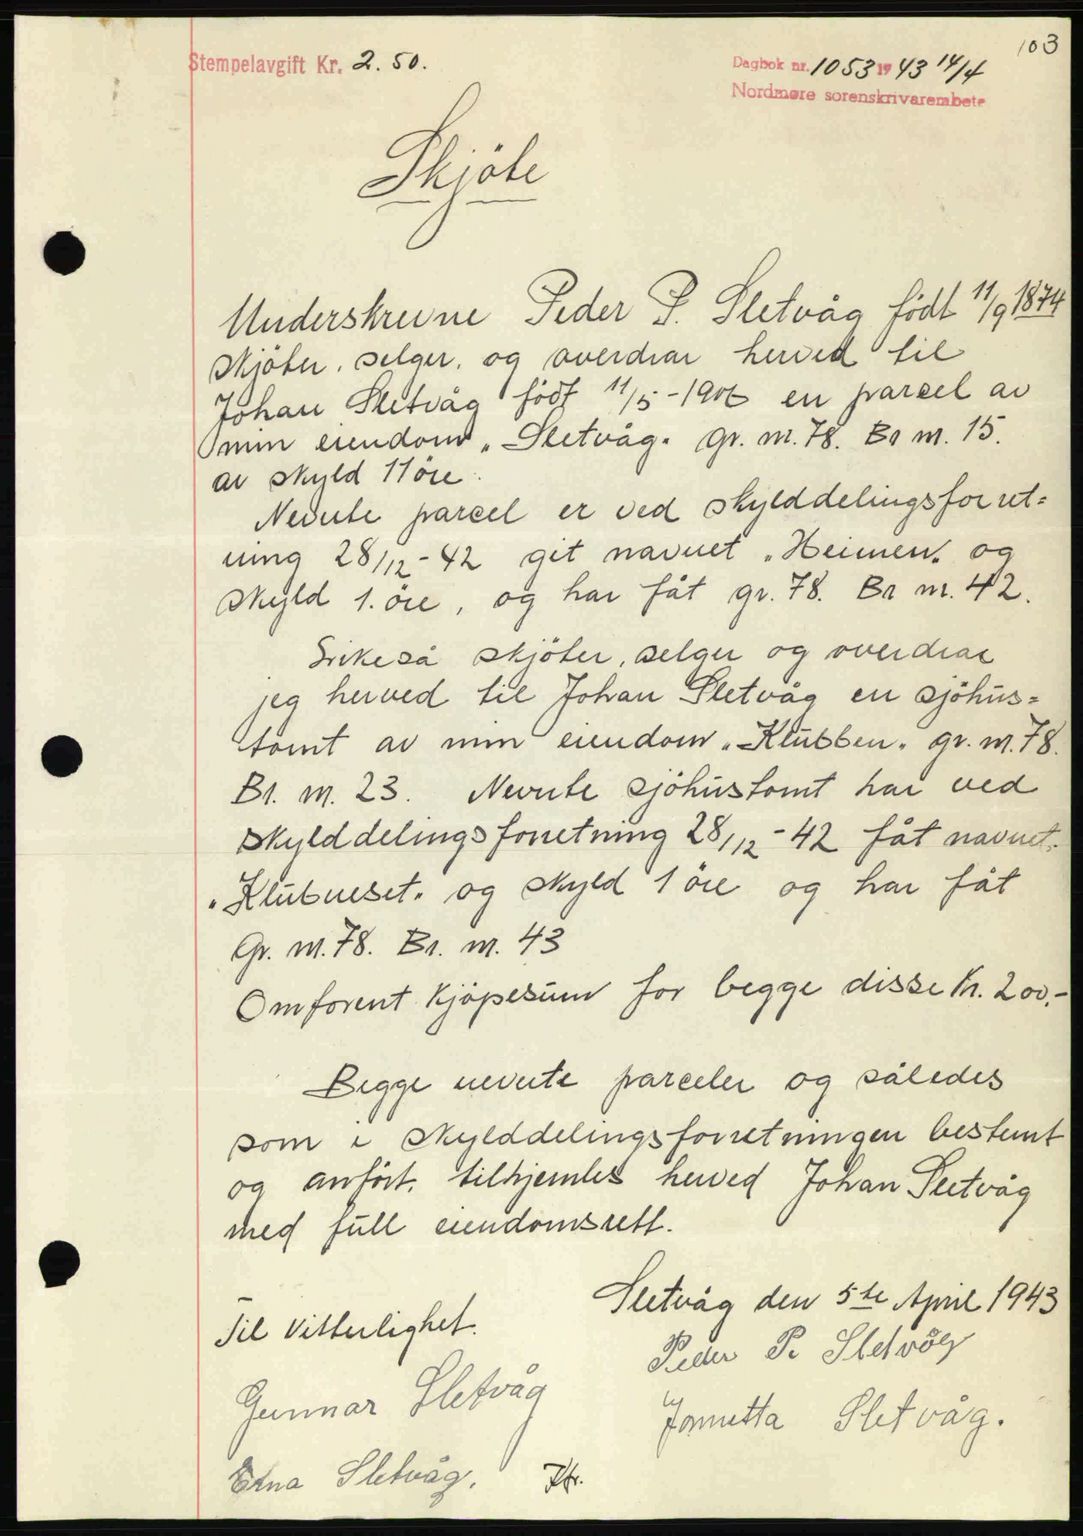 103
Stempelavgift Kr. 2.50.
Dagbok nr. 1053 1943 14/4
Nordmøre sorenskrivarembete
Skjöte
Underskrevne Peder P. Sletvåg födt 11/9 1874
skjöter, selger, og overdrar herved til
Johan Sletvåg födt 11/5-1906 en parcel av
min eiendom „Sletvåg„ gr. nr. 78. Br nr. 15.
av skyld 11 öre.
Nevnte parcel er ved skylddelingsforret=
ning 28/12-42 git navnet „Heimen„ og
skyld 1. öre, og har fåt gr. 78. Br nr. 42.
Likeså skjöter, selger og overdrar
jeg herved til Johan Sletvåg en sjöhus=
tomt av min eiendom „Klubben„ gr. nr. 78.
Br. nr. 23. Nevnte sjöhustomt har ved
skylddelingsforretning 28/12-42 fåt navnet
„Klubneset„ og skyld 1 öre og har fåt
Gr. nr. 78. Br. nr. 43
Omforent kjöpesum for begge disse Kr. 200,-
Begge nevnte parceler og således
som i skylddelingsforretningen bestemt
og anfört, tilhjemles herved Johan Sletvåg
med full eiendomsrett.
Sletvåg den 5te April 1943
Til Vitterlighet.
Peder P. Sletvåg
Gunnar Sletvåg
Jonnetta Sletvåg.
Edna Sletvåg.